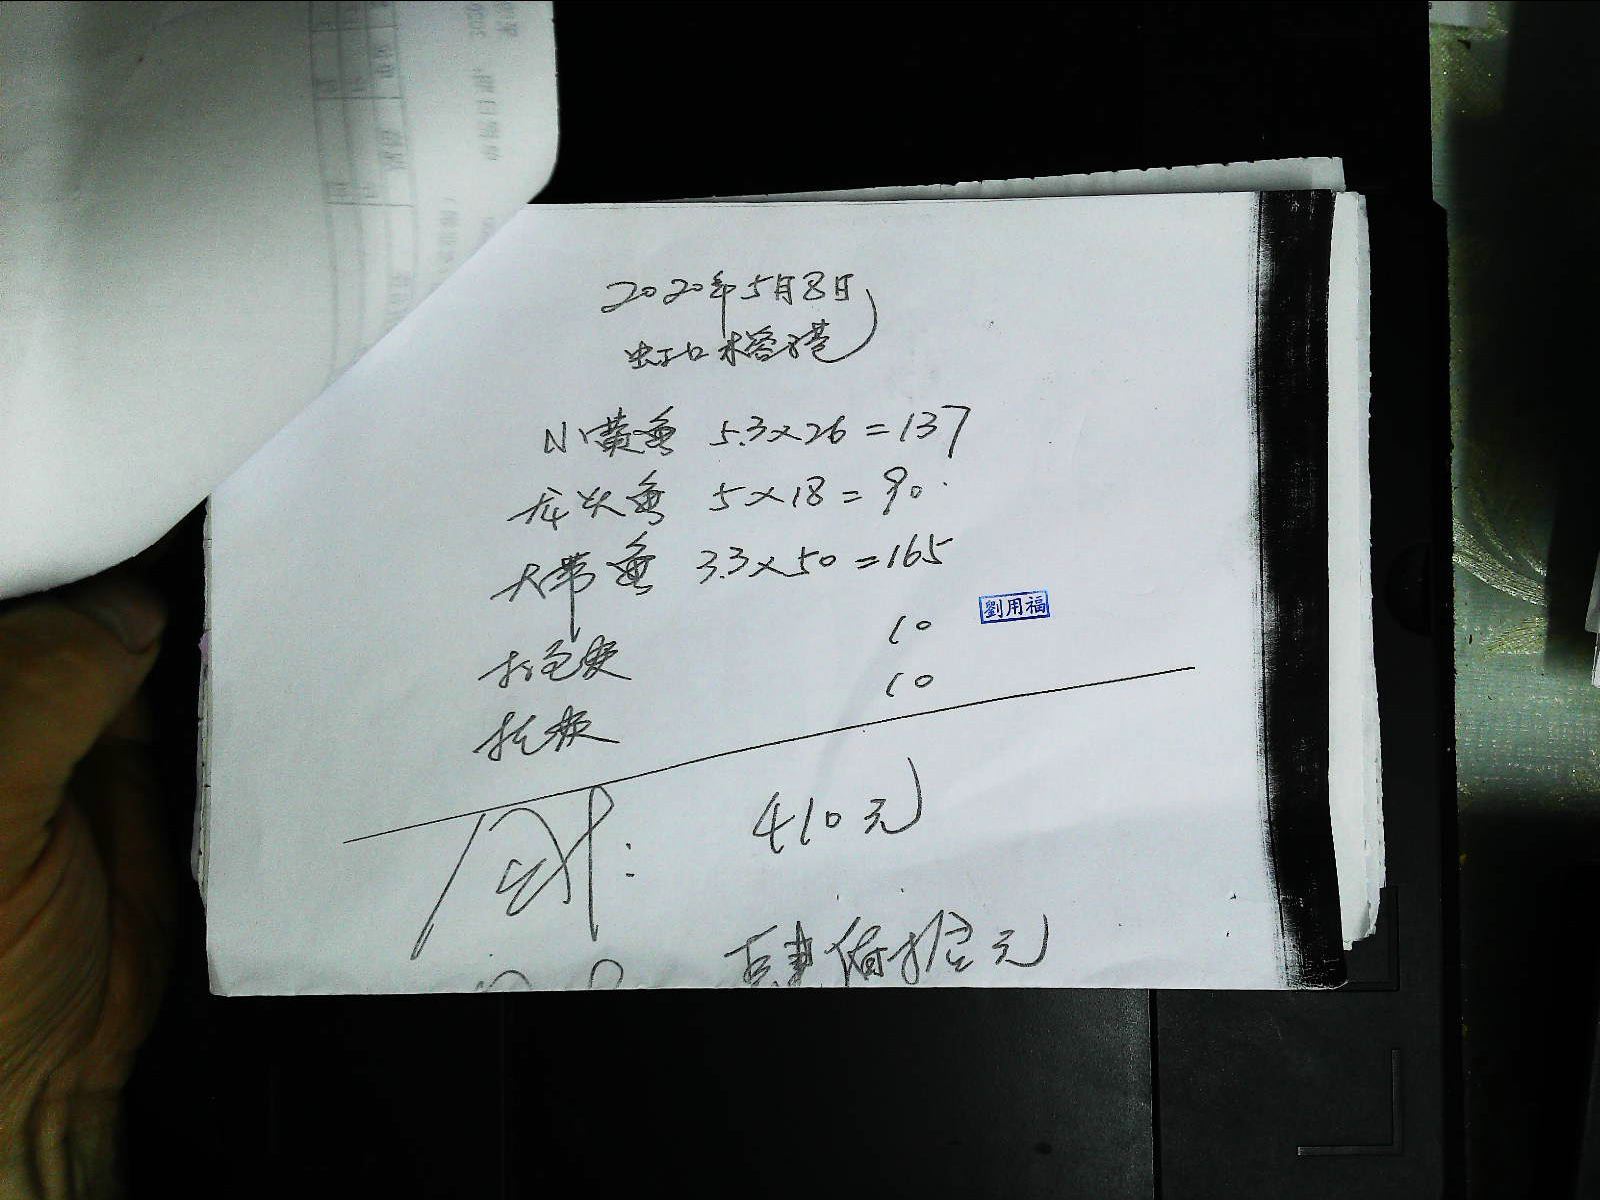 2020年5月8日
虹口榕港
小黄鱼 5.3×26=137
龙头鱼 5×18=90
大带鱼 3.3×50=165
打包费 10
劉用福
10
410元
肆佰拾元